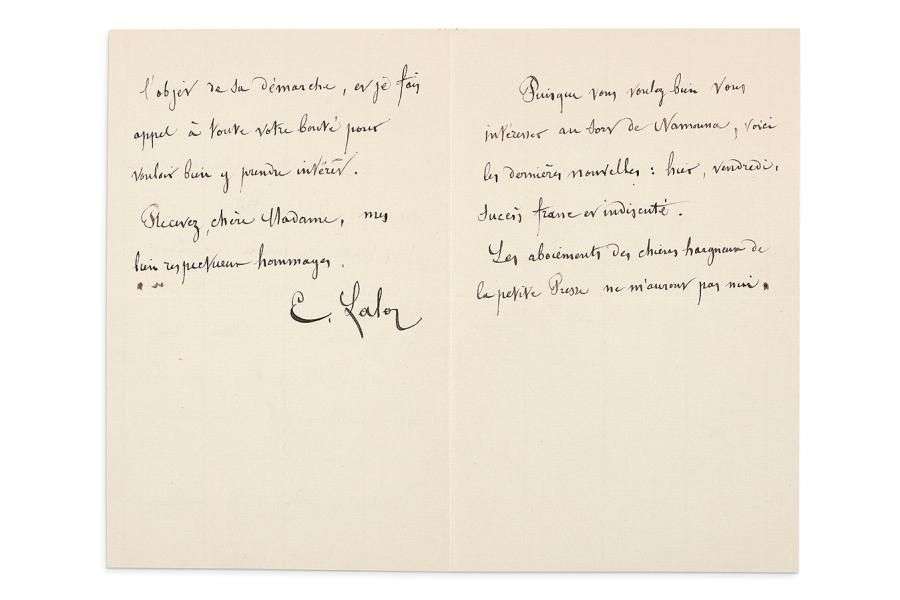 l'objet de sa démarche, et je fais
appel à toute votre bonté pour
vouloir bien y prendre intérêt.
Recevez, chère Madame, mes
bien respectueux hommages.
E. Lalo
Puisque vous voulez bien vous
intéresser au sort de Namouna, voici
les dernières nouvelles : hier, vendredi,
succès franc et indiscuté.
Les aboiements des chiens hargneux de
la petite Presse ne m'auront pas nui.